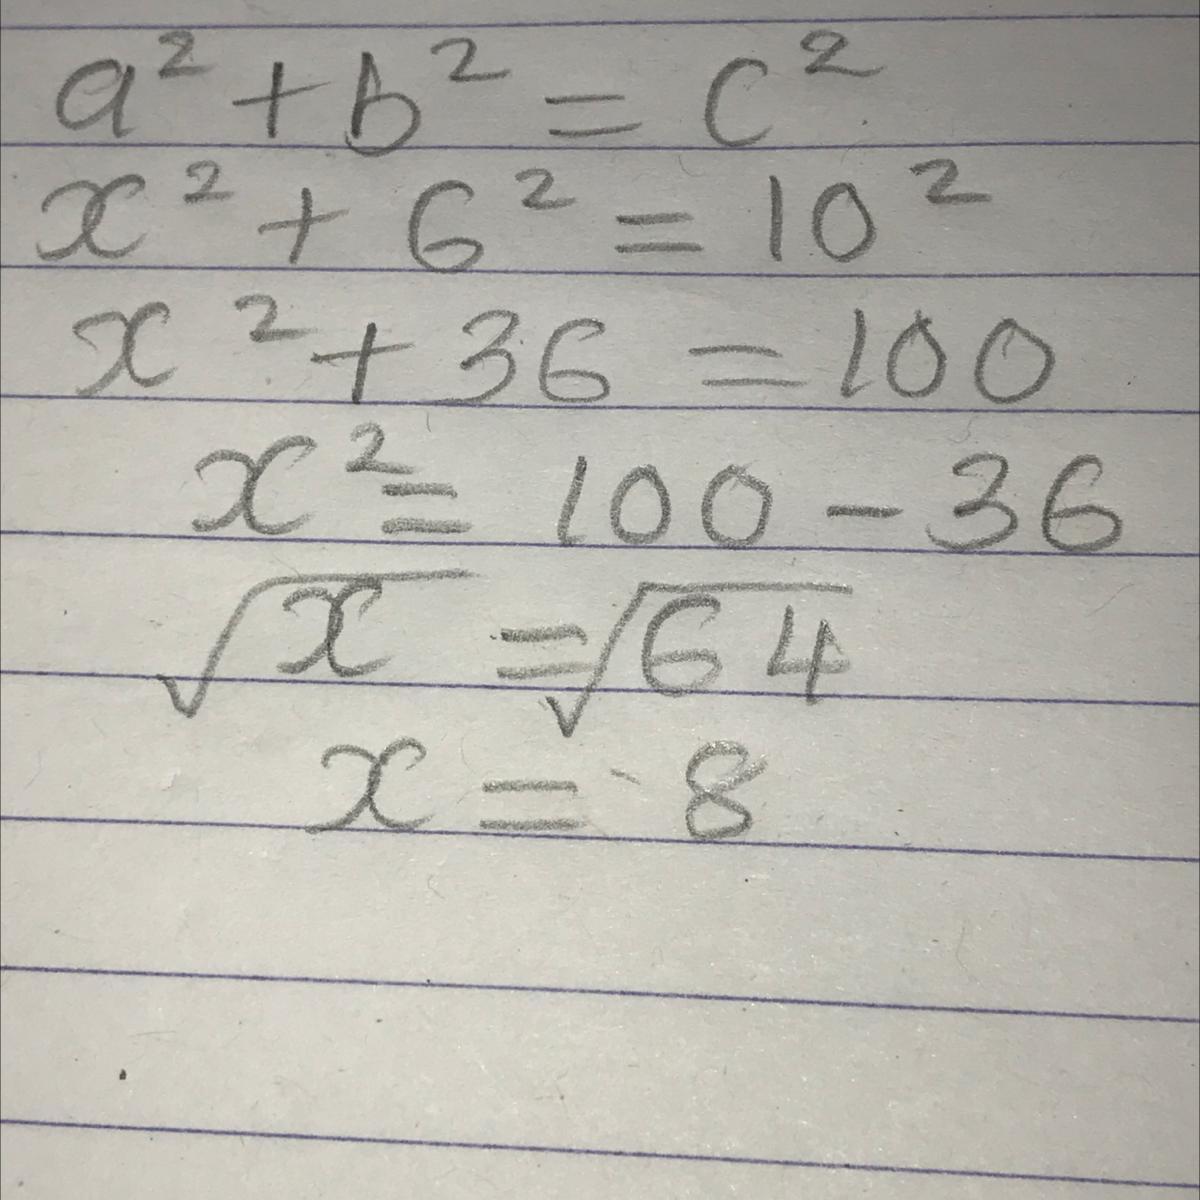 a² + b² = c²
x² + 6² = 10²
x² + 36 = 100
x² = 100 - 36
√x = √64
x = 8